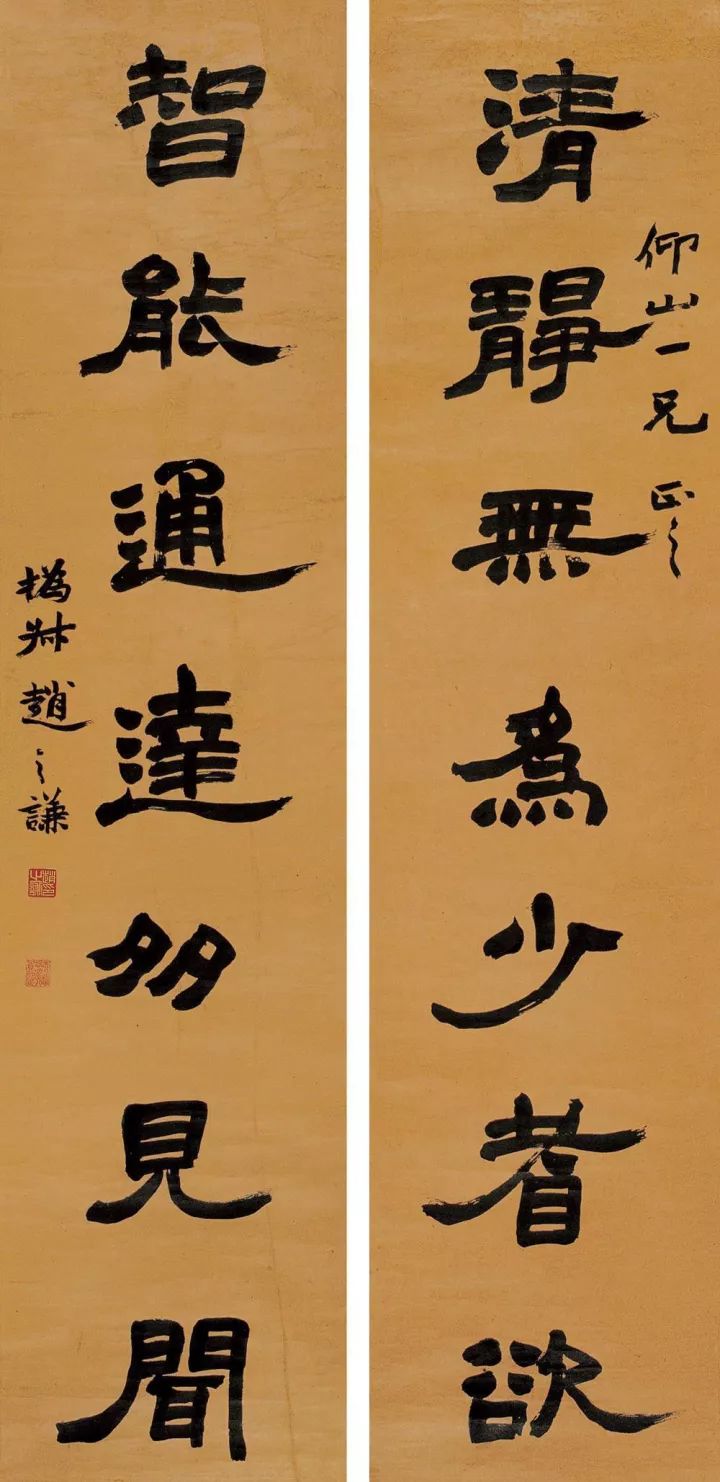 仰山一兄 正之
清靜無爲少耆欲
智能通達多見聞
撝叔趙之謙